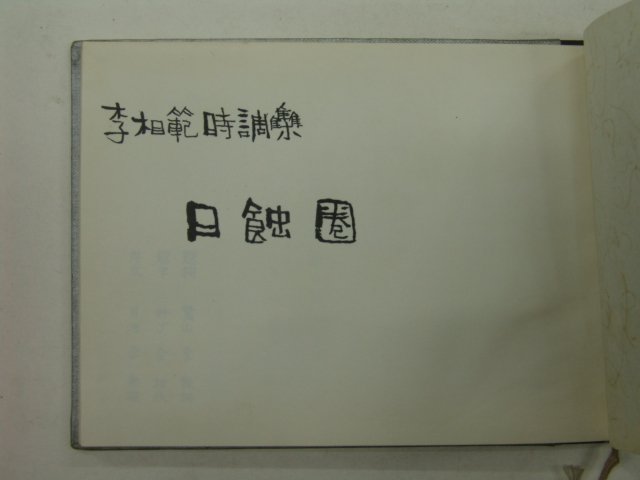 李相範時調集
日蝕圈